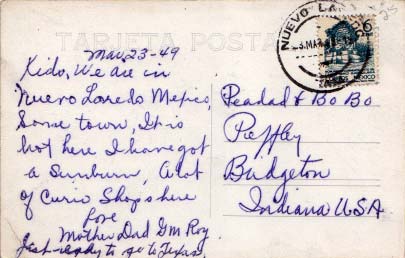 TARJETA POSTAL
Mar, 23-49
Kido, We are in
Nuevo Laredo Mexico,
Some town, It is
hot here I have got
a Sunburn, A lot
of Curio Shops here
Love
Mother Dad GM Roy
Just ready to go to Texas.
NUEVO LAREDO
MAR
TAM
MEXICO
& Bo Bo
Peffley
Bridgeton
Indiana USA